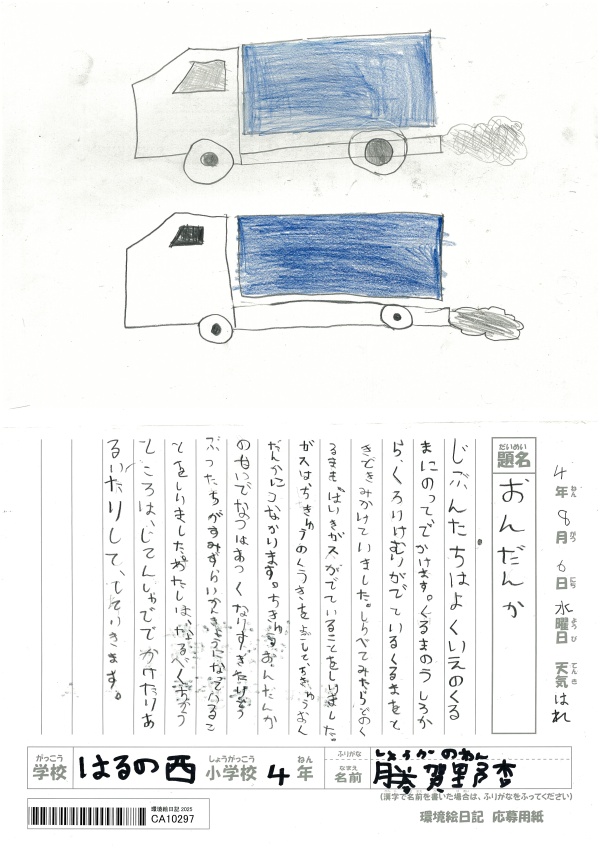 4年ねん 8月がつ 6日にち 水曜日ようび 天気てんき はれ
だいめい
題名 おんだんか
じぶんたちはよくいえのくる
まにのってでかけます。くるまのうしろか
ら、くろいけむりがでているくるまをと
きどきみかけていました。しらべてみたらどのく
るまも「はいきガス」がでていることをしりました。
ガスはちきゅうのくうきをよごして、ちきゅうおん
だんかにつながります。ちきゅうおんだんか
のせいでなつはあつくなりすぎたりどう
ぶつたちがすみずらいかんきょうになっているこ
とをしりました。わたしは、なるべくちかう
ところは、じてんしゃででかけたりあ
るいたりして、していきます。
がっこう しょうがっこう ねん ふりがな
学校 はるの西 小学校 4年 なまえ 名前
(漢字で名前を書いた場合は、ふりがなをふってください)
環境絵日記2025
CA10297
環境絵日記 応募用紙